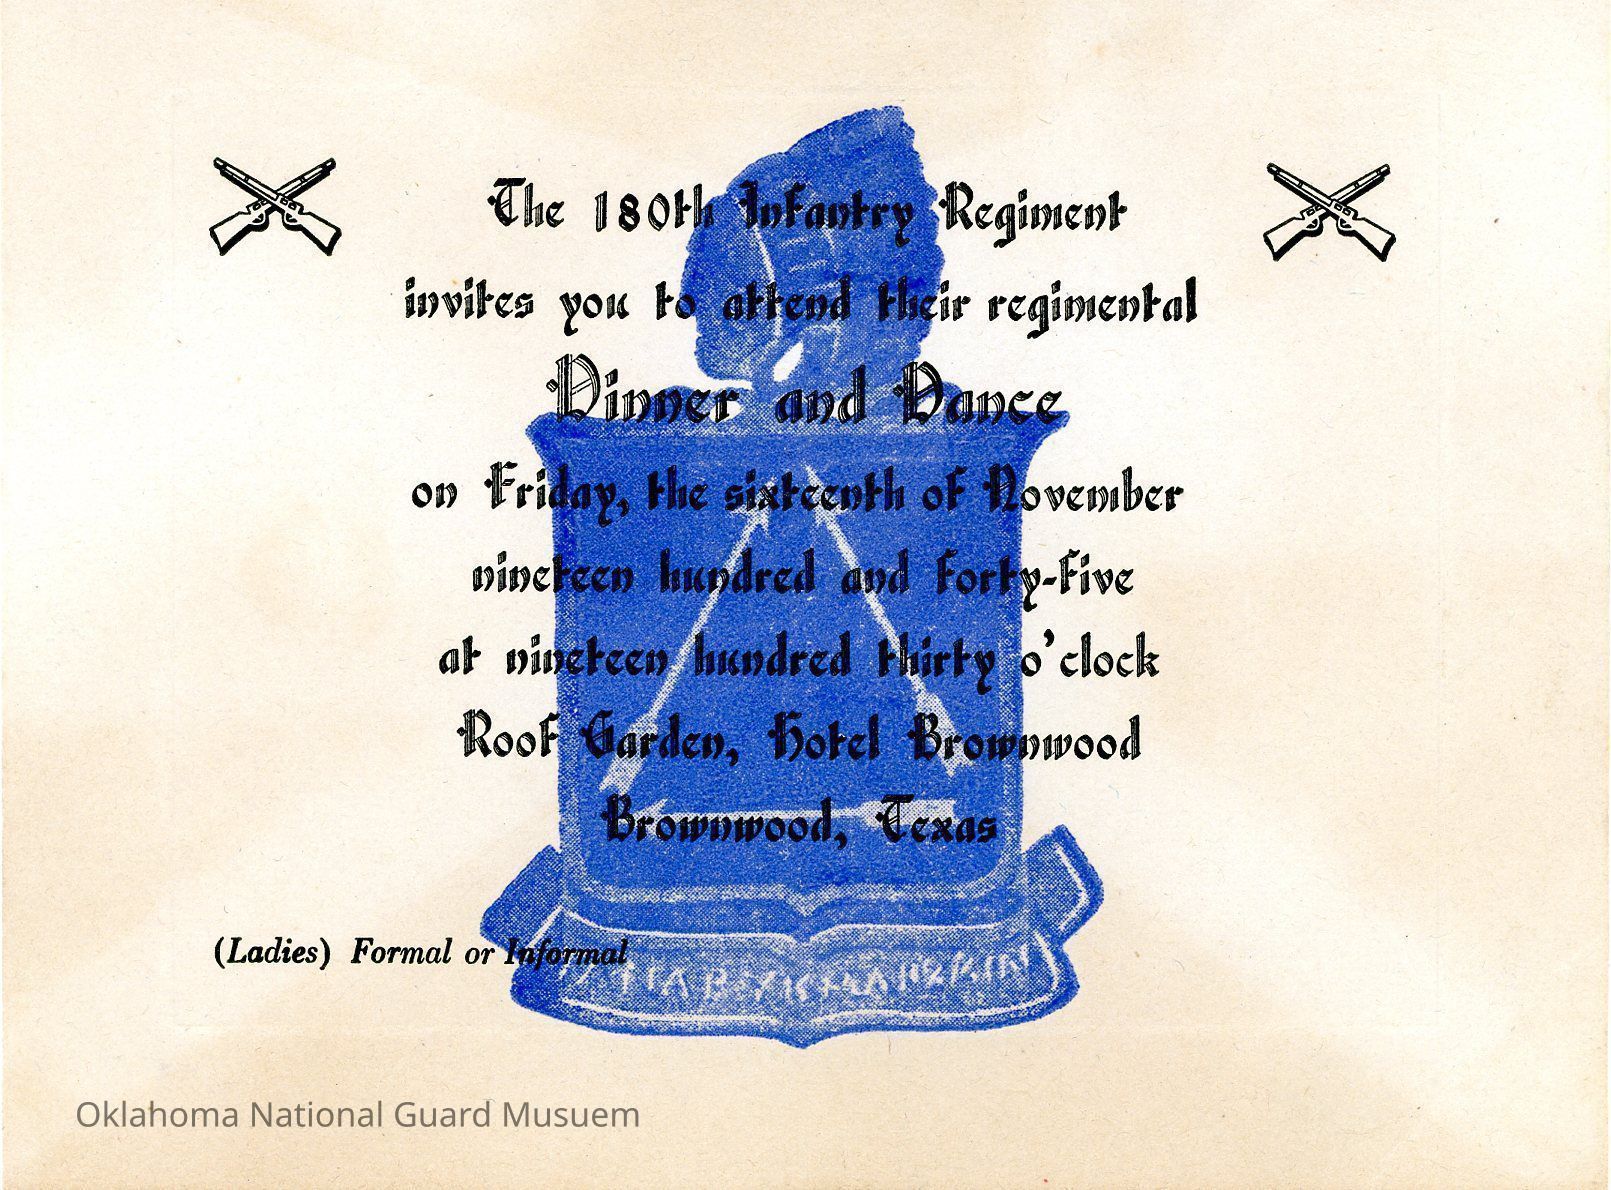 The 180th Infantry Regiment
invites you to attend their regimental
Dinner and Dance
on Friday, the sixteenth of November
nineteen hundred and forty-five
at nineteen hundred thirty o'clock
Roof Garden, Hotel Brownwood
Brownwood, Texas
(Ladies) Formal or Informal
Oklahoma National Guard Musuem